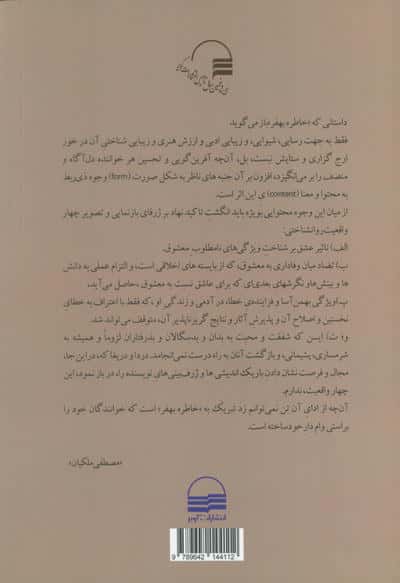 داستانی که «خاطره بهفر» باز می‌گوید،
فقط به جهت رسایی، شیوایی، و زیبایی ادبی و ارزش هنری و زیبایی شناختی آن در خور
ارج گزاری و ستایش نیست، بل، آن‌چه آفرین‌گویی و تحسین هر خواننده دل‌آگاه و
منصف را بر می‌انگیزد، افزون بر آن جنبه های ناظر به شکل صورت (form) وجوه ذی‌ربط
به محتوا و معنا (content) ی این اثر است.
از میان این وجوه محتوایی بویژه باید انگشت تاکید نهاد بر ژرفای بازنمایی و تصویر چهار
واقعیت روانشناختی:
الف) تاثیر عشق بر شناخت ویژگی های نامطلوب معشوق.
ب) تضاد میان وفاداری به معشوق، که از بایسته های اخلاقی است، و التزام عملی به دانش
ها و بینش‌ها و نگرشهای بعدی‌ای که برای عاشق نسبت به معشوق، حاصل می‌آید.
پ) ویژگی بهمن‌آسا و فزاینده‌ی خطا، در آدمی و زندگی او، که فقط با اعتراف به خطای
نخستین و اصلاح آن و پذیرش آثار و نتایج گریزناپذیر آن، متوقف می‌تواند شد.
و، ت) این که شفقت و محبت به بدان و بدسگالان و بدرفتاران لزوماً و همیشه به
شرمساری، پشیمانی، و بازگشت آنان به راه درست نمی‌انجامد. دردا و دریغا که، در این جا،
مجال و فرصت نشان دادن باریک اندیشی ها و ژرف‌بینی‌های نویسنده را، در باز نمود، این
چهار واقعیت، ندارم.
آن‌چه از ادای آن تن نمی‌توانم زد تبریک به «خاطره بهفر» است که خوانندگان خود را
براستی وام دار خود ساخته است.
«مصطفی ملکیان»
انتشارات کویر
9 789642 144112